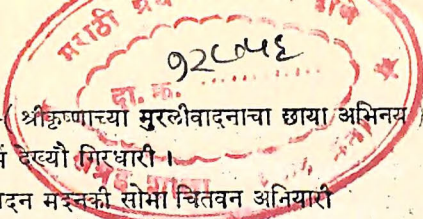 मराठी
दा. क्र.
१२७५६
( श्रीकृष्णाच्या मुरलीवादनाचा छाया अभिनय )
देख्यौ गिरधारी ।
मदनकी सोभा चितवन अनियारी